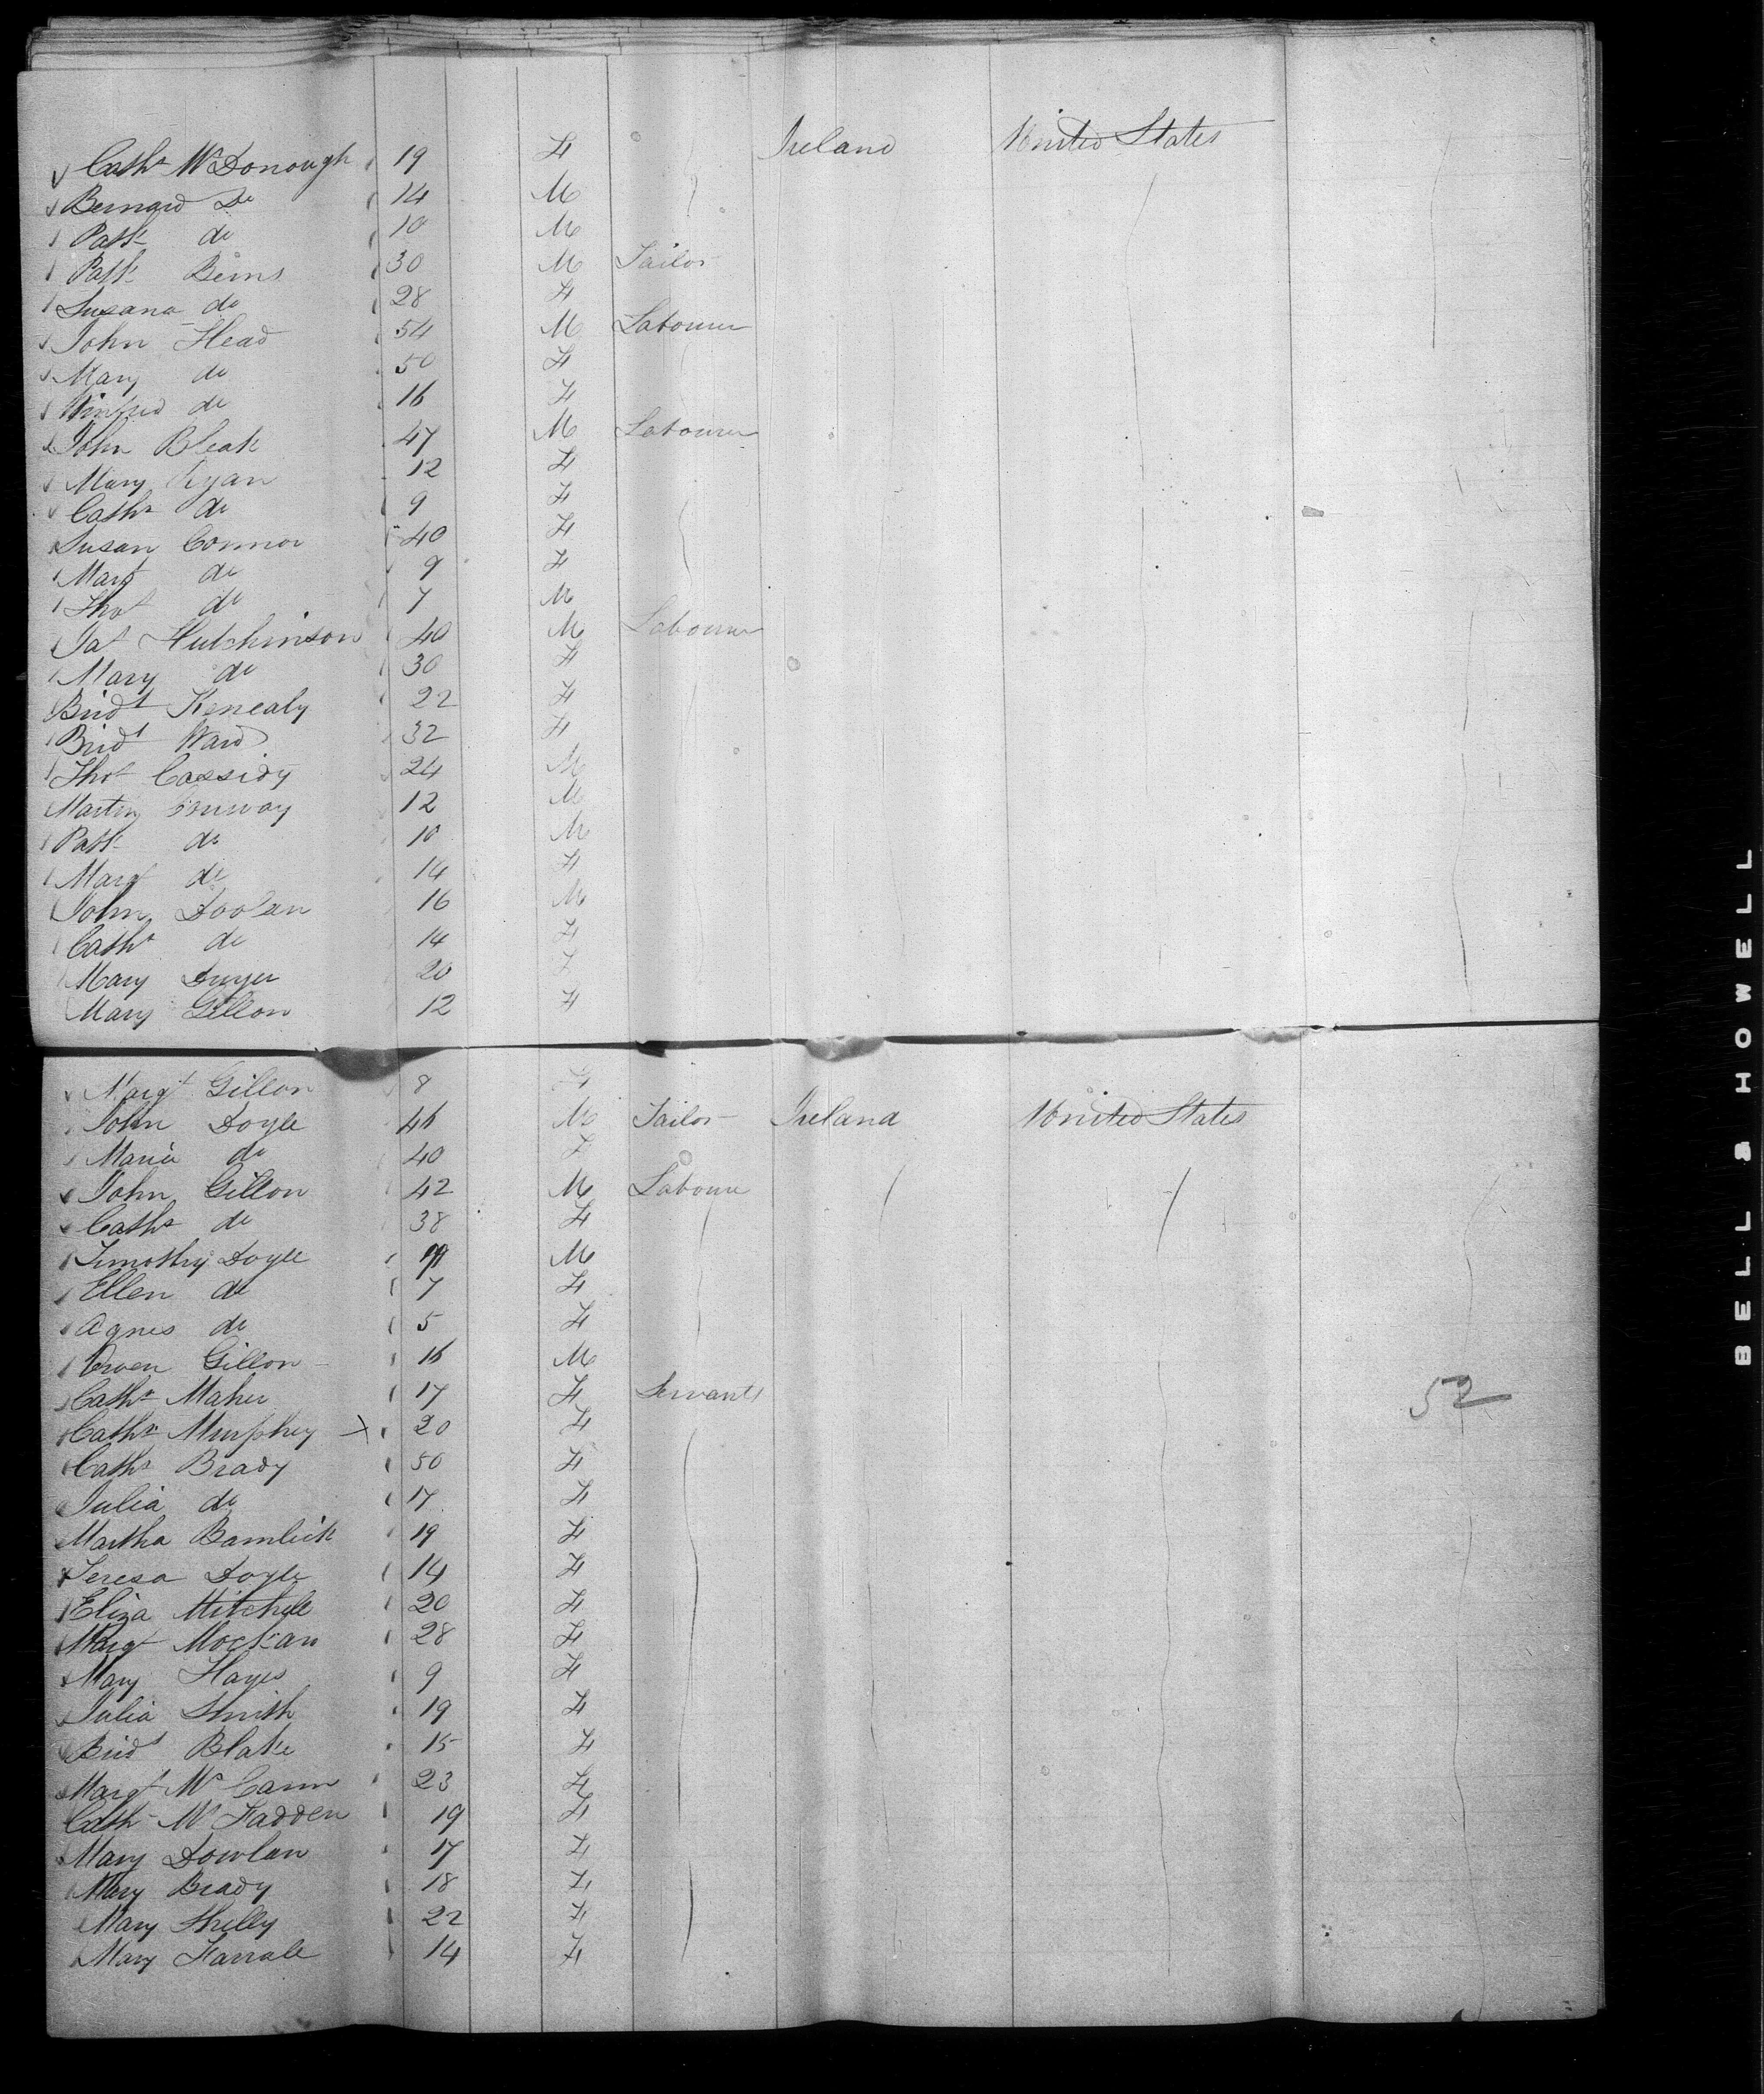 Cathe McDonough 19 F Ireland United States
Bernard Do 14 M
Patk do 10 M
Patk Beirns 30 M Tailor
Susana do 28 F
John Head 54 M Labourer
Mary do 50 F
Winfred do 16 F
John Bleak 47 M Labourer
Mary Ryan 12 F
Cathe do 9 F
Susan Connor 40 F
Margt do 9 F
Thos do 7 M
Jas Hutchinson 40 M Labourer
Mary do 30 F
Bridt Kenealy 22 F
Bridt Ward 32 F
Thos Cassidy 24 M
Martin Conway 12 M
Patk do 10 M
Margt do 14 F
John Doolan 16 M
Cathe do 14 F
Mary Dwyer 20 F
Mary Gillon 12 F
Margt Gillon 8 F
John Doyle 46 M Tailor Ireland United States
Maria do 40 F
John Gillon 42 M Labourer
Cathe do 38 F
Timothy Doyle M
Ellen do 7 F
Agnes do 5 F
Owen Gillon 16 M
Cathe Maher 17 F Servants 52
Cathe Murphey X 20 F
Cathe Brady 50 F
Julia do 17 F
Martha Bamlick 19 F
Teresa Doyle 14 F
Eliza Mitchell 20 F
Margt Mockan 28 F
Mary Hayes 9 F
Julia Smith 19 F
Bridt Blake 15 F
Margt McCann 23 F
Cath McFadden 19 F
Mary Dowlan 17 F
Mary Brady 18 F
Mary Shelly 22 F
Mary Farrale 14 F
BELL & HOWELL